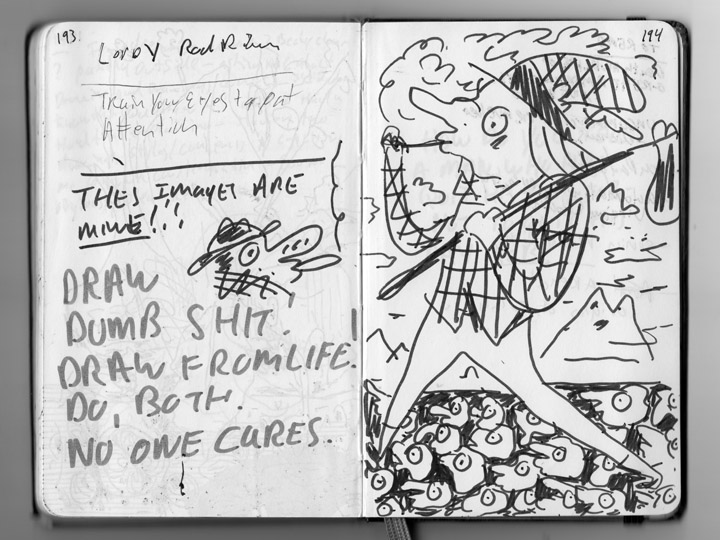 193.
194
Train Your Eyes to pat
Attention
THES IMAGES ARE
MINE!!!
DRAW
DUMB SHIT.
DRAW FROM LIFE.
DO, BOTH.
NO ONE CARES.